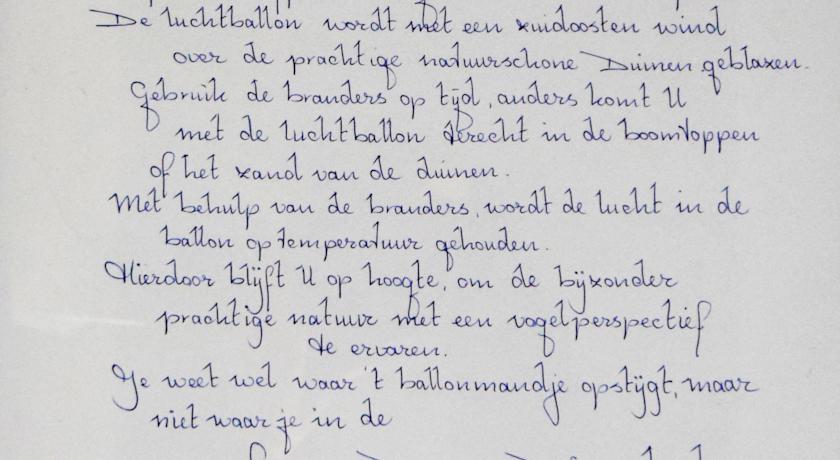 De luchtballon wordt met een zuidoosten wind
over de prachtige natuurschone Duinen geblazen.
Gebruik de branders op tijd, anders komt U
met de luchtballon terecht in de boomtoppen
of het zand van de duinen.
Met behulp van de branders, wordt de lucht in de
ballon op temperatuur gehouden.
Hierdoor blijft U op hoogte, om de bijzonder
prachtige natuur met een vogelperspectief
te ervaren.
Je weet wel waar 't ballonmandje opstijgt, maar
niet waar je in de